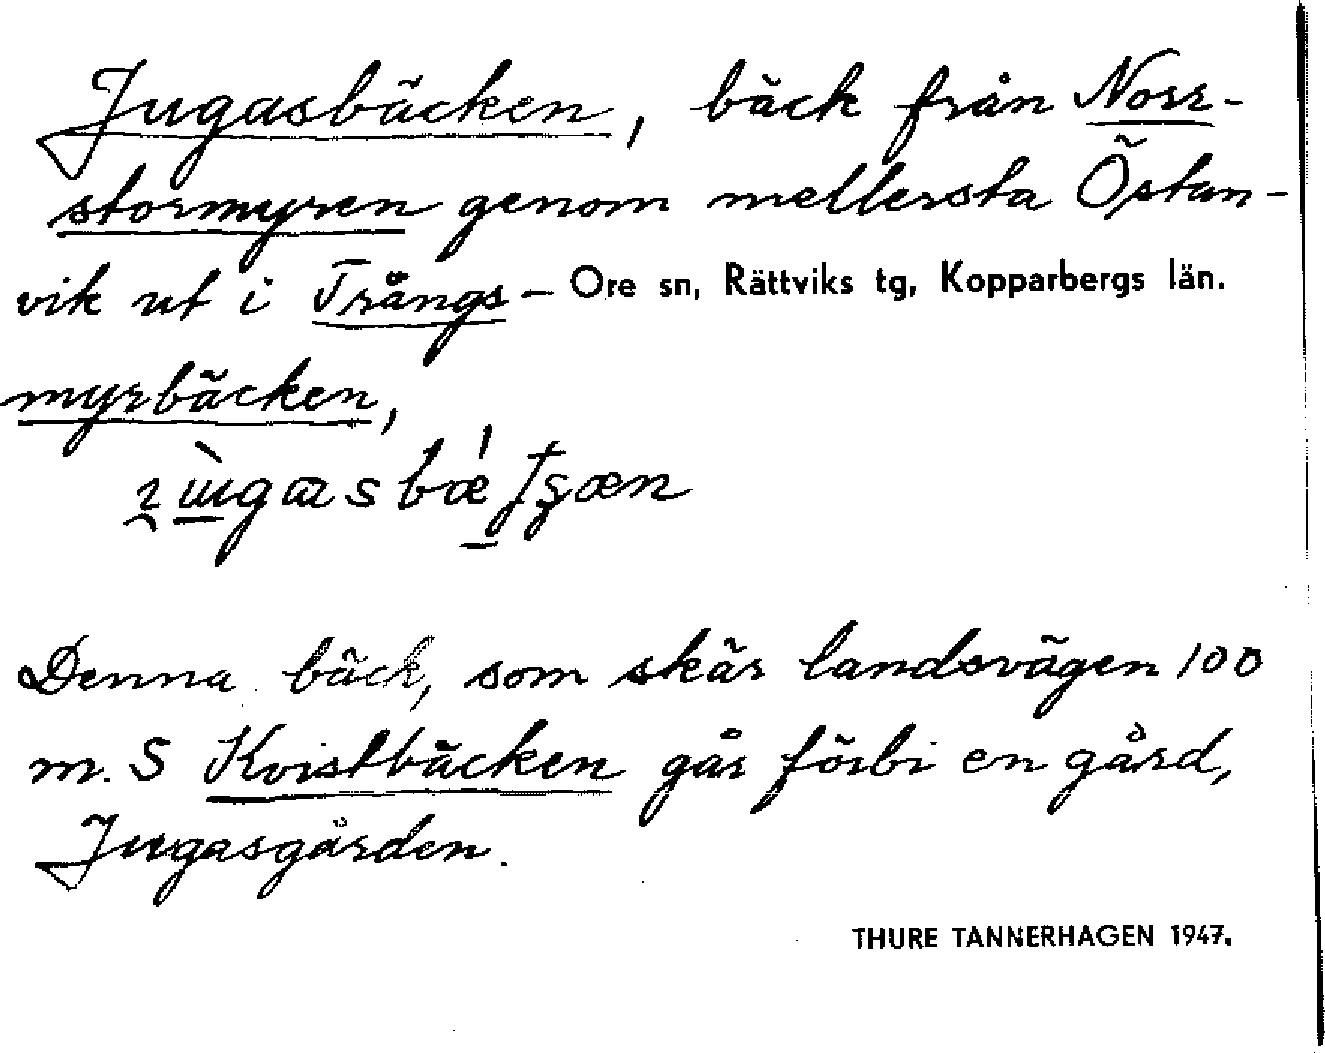 Jugasbäcken, bäck från Norr-
stormyren genom mellersta Östan-
vik ut i Trångs-
Ore sn, Rättviks tg, Kopparbergs län.
myrbäcken,
Denna bäck, som skär landsvägen 100
m. S Kvistbäcken går förbi en gård,
Jugasgården.
THURE TANNERHAGEN 1947.